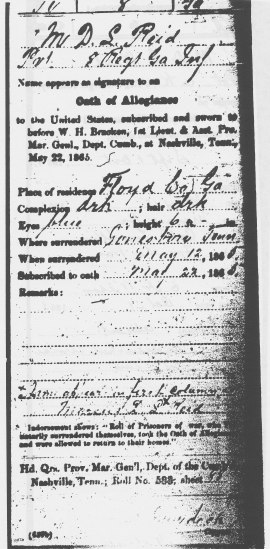 M D L Reid
Pvt. E Regt Ga Inf
Name appears as signature to an
Oath of Allegiance
to the United States, subscribed and sworn to
before W. H. Bracken, 1st Lieut. & Asst. Pro.
Mar. Genl., Dept. Cumb., at Nashville, Tenn.,
May 22, 1865.
Place of residence Floyd Co, Ga
Complexion drk ; hair drk
Eyes blue ; height 6 ft. - in.
Where surrendered Tenn
When surrendered May 12, 1865.
Subscribed to oath May 22, 1865.
Remarks:
in first column
Reid
Indorsement shows: "Roll of Prisoners of war, who
surrendered themselves, took the Oath of Allegiance
and were allowed to return to their homes."
Hd. Qrs. Prov. Mar. Gen'l, Dept. of the
Nashville, Tenn.; Roll No. 583; sheet